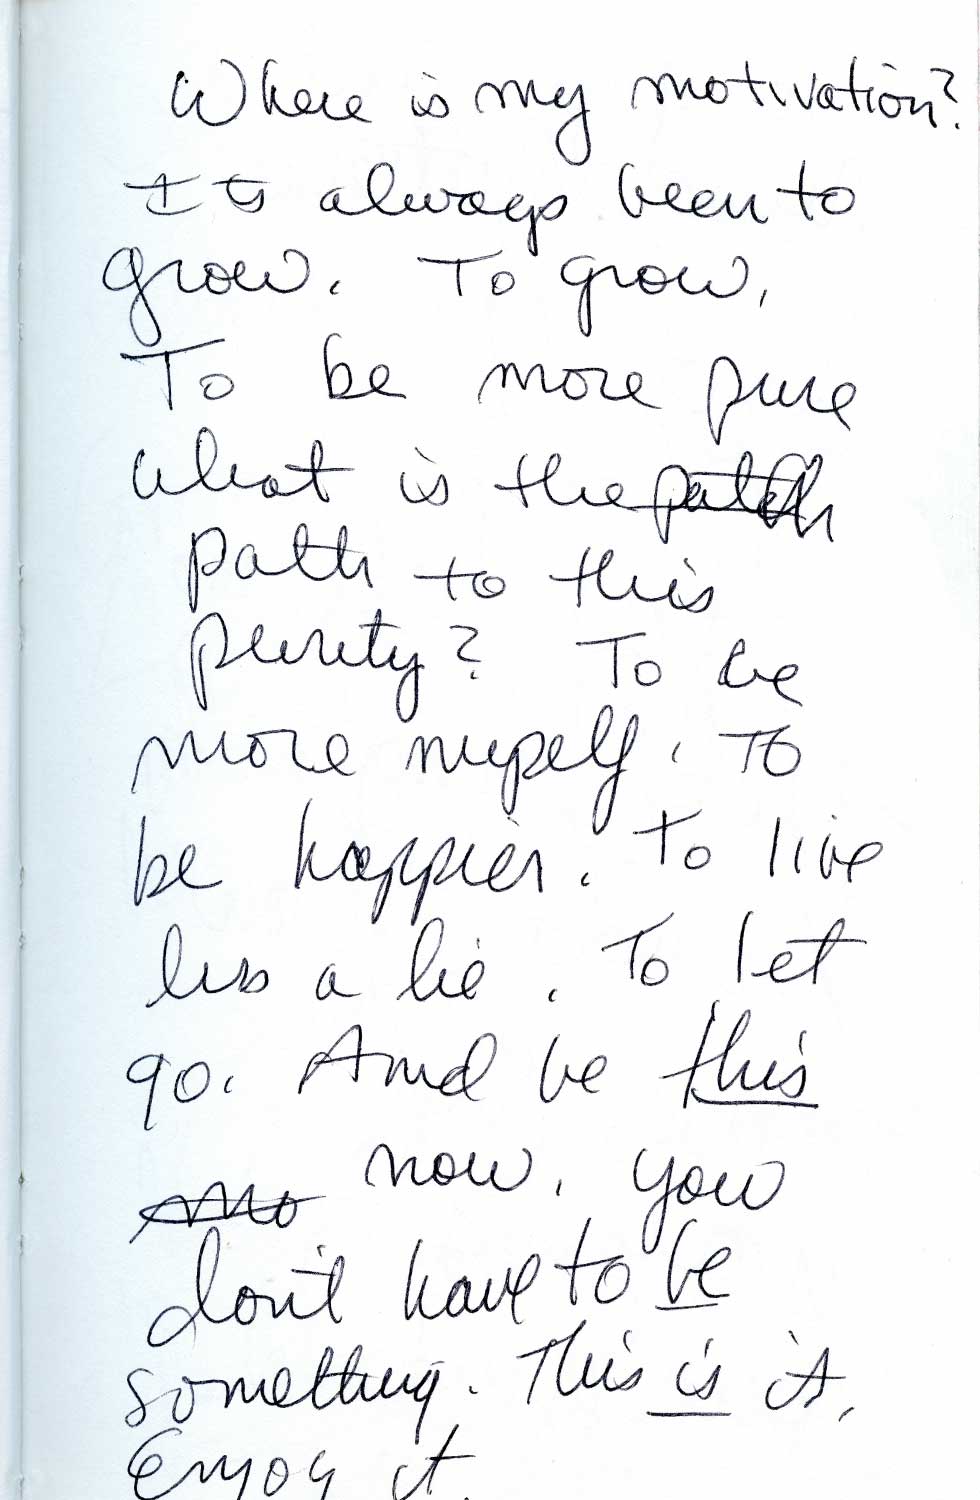 Where is my motivation?
Its always been to
grow. To grow.
To be more pure
what is the path
path to this
purity? To be
more myself. To
be happier. To live
less a lie. To let
go. And be this
now. You
don't have to be
something. This is it.
Enjoy it.